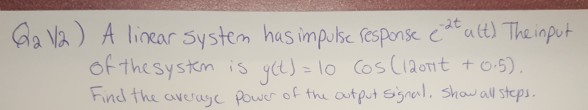 Q2 V2) A linear system has impulse response e^-2t u(t) The input
of the system is y(t) = 10 cos(120πt + 0.5).
Find the average power of the output signal. Show all steps.